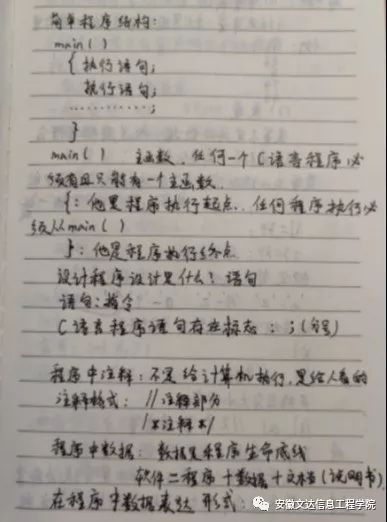 简单程序结构:
main( )
{ 执行语句;
执行语句;
…………;
}
main( ) 主函数、任何一个C语言程序必
须有且只能有一个主函数.
{:他是程序执行起点、任何程序执行必
须从main( )
}:他是程序执行终点
设计程序设计是什么?语句
语句:指令
C语言程序语句存在标志:;(分号)
程序中注释:不是给计算机执行,是给人看的
注释格式: //注释部分
/*注释*/
程序中数据:数据是程序生命底线
软件=程序+数据+文档(说明书)
在程序中数据表达形式:
安徽文达信息工程学院